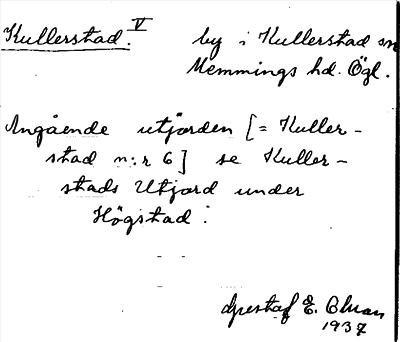 Kullerstad. V
by i Kullerstad sn
Memmings hd. Ögl.
Angående utjorden [= Kuller-
stad n:r 6] se Kuller-
stads Utjord under
Högstad.
Gustaf E. Ohman
1937